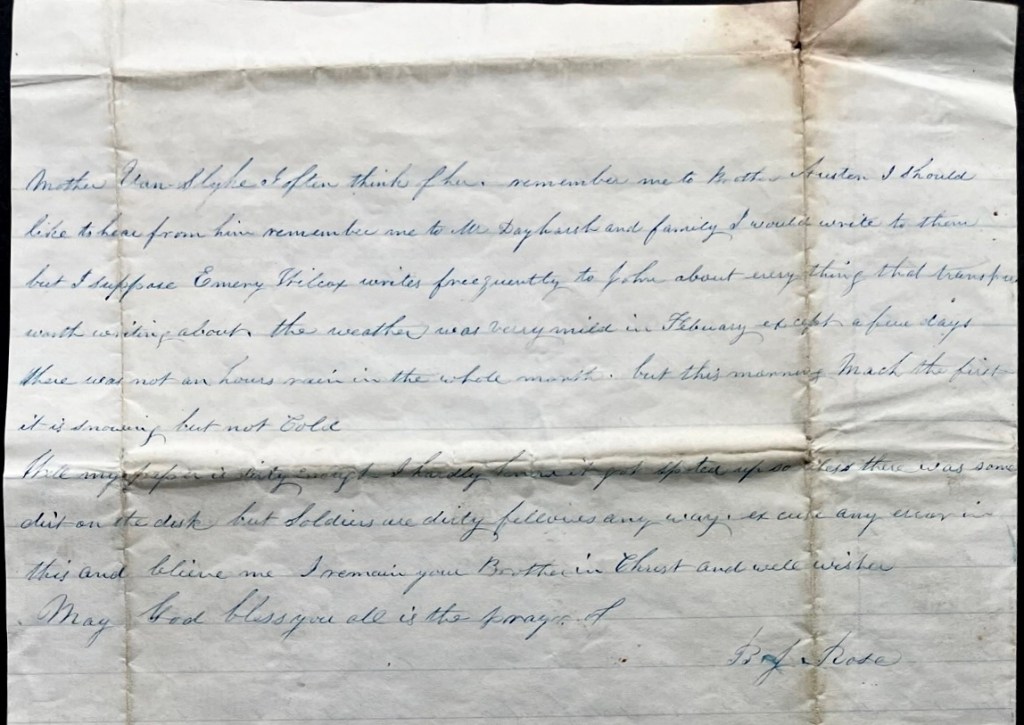 Mother Van Slyke I often think of her. remember me to Brother Austen I should
like to hear from him remember me to Mr Dayharsh and family I would write to them
but I suppose Emery Wilcox writes freequently to John about every thing that transpire
worth writing about. the weather was very mild in Febuary except a few days
there was not an hours rain in the whole month. but this morning Mach the first
it is snowing but not Cold
Well my paper is dirty enough I hardly know it got spoted up so less there was some
dirt on the desk but Soldiers are dirty fellows any way. excuse any error in
this and blieve me I remain your Brother in Christ and well wisher
May God bless you all is the prayr of
B J Rose